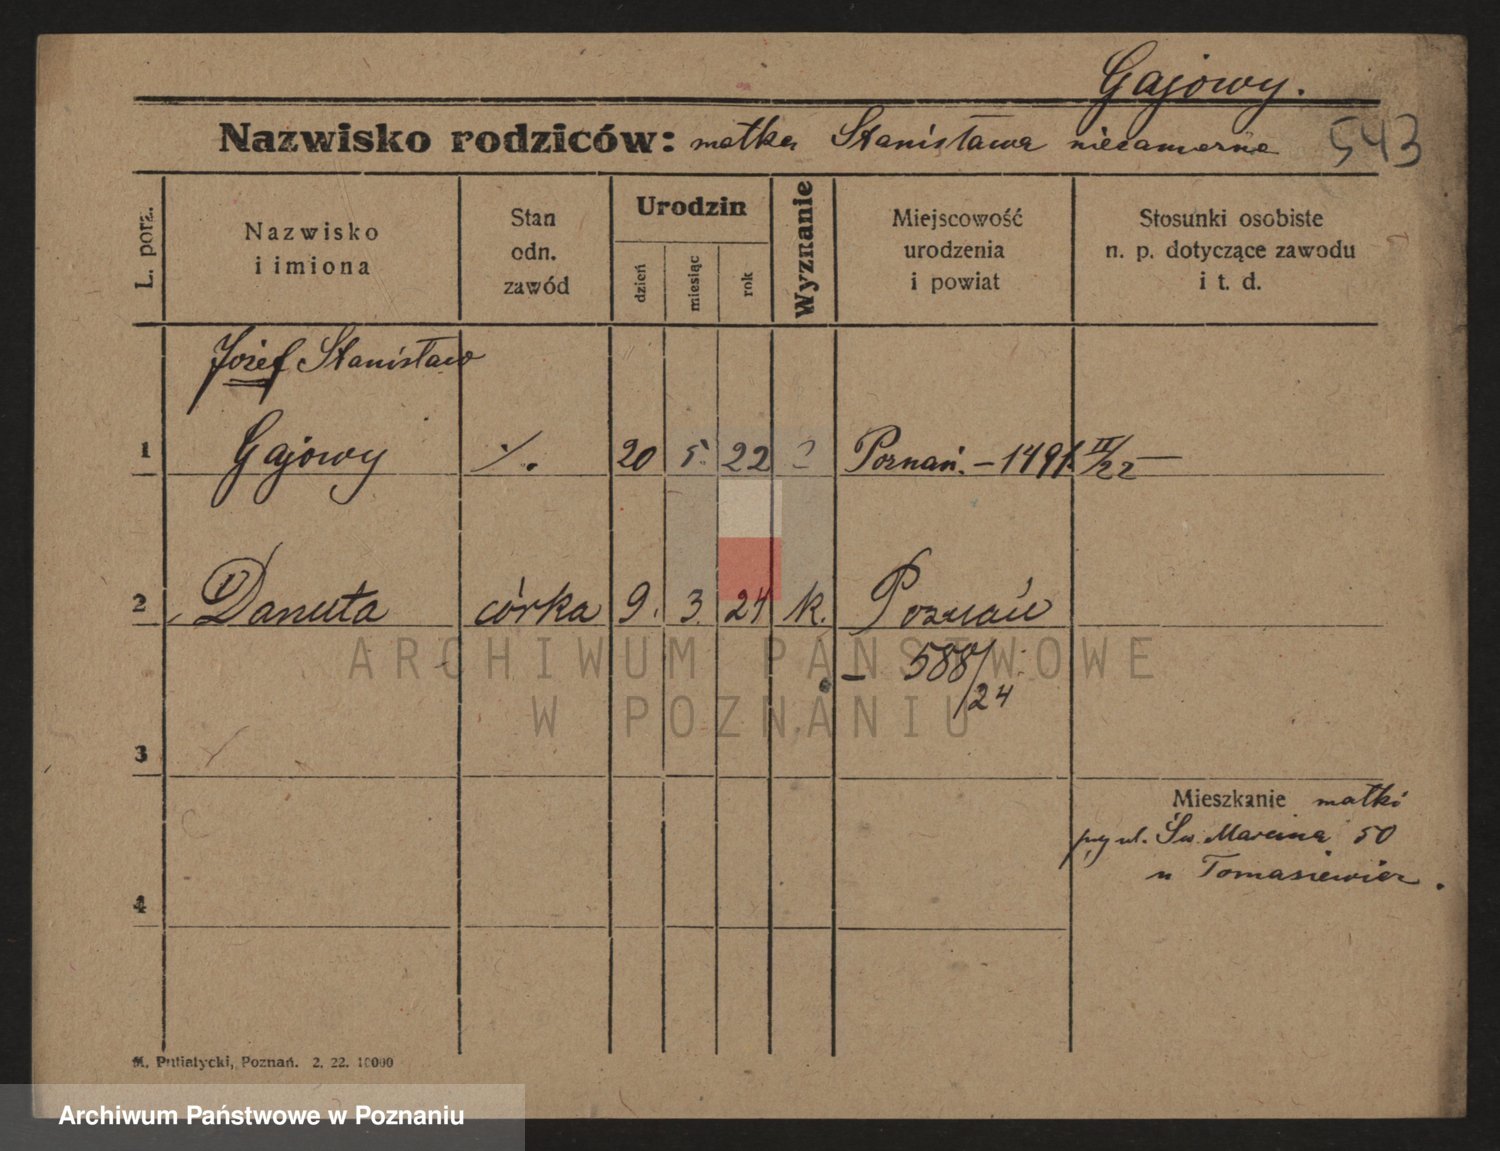 Gajowy.
Nazwisko rodziców: matka Stanisława niezamężna 543
L. porz.
Nazwisko
i imiona
Stan
odn.
zawód
Urodzin
dzień
miesiąc
rok
Wyznanie
Miejscowość
urodzenia
i powiat
Stosunki osobiste
n. p. dotyczące zawodu
i t. d.
Józef Stanisław
1 Gajowy ·/. 20 5. 22 ? Poznań. – 1491 II/22 —
2 1) Danuta córka 9. 3. 24 k. Poznań
– 588/24
3
Mieszkanie matki
przy ul. Św. Marcina 50
u Tomasiewicz.
4
M. Putiatycki, Poznań. 2. 22. 10000
ARCHIWUM PAŃSTWOWE
W POZNANIU
Archiwum Państwowe w Poznaniu